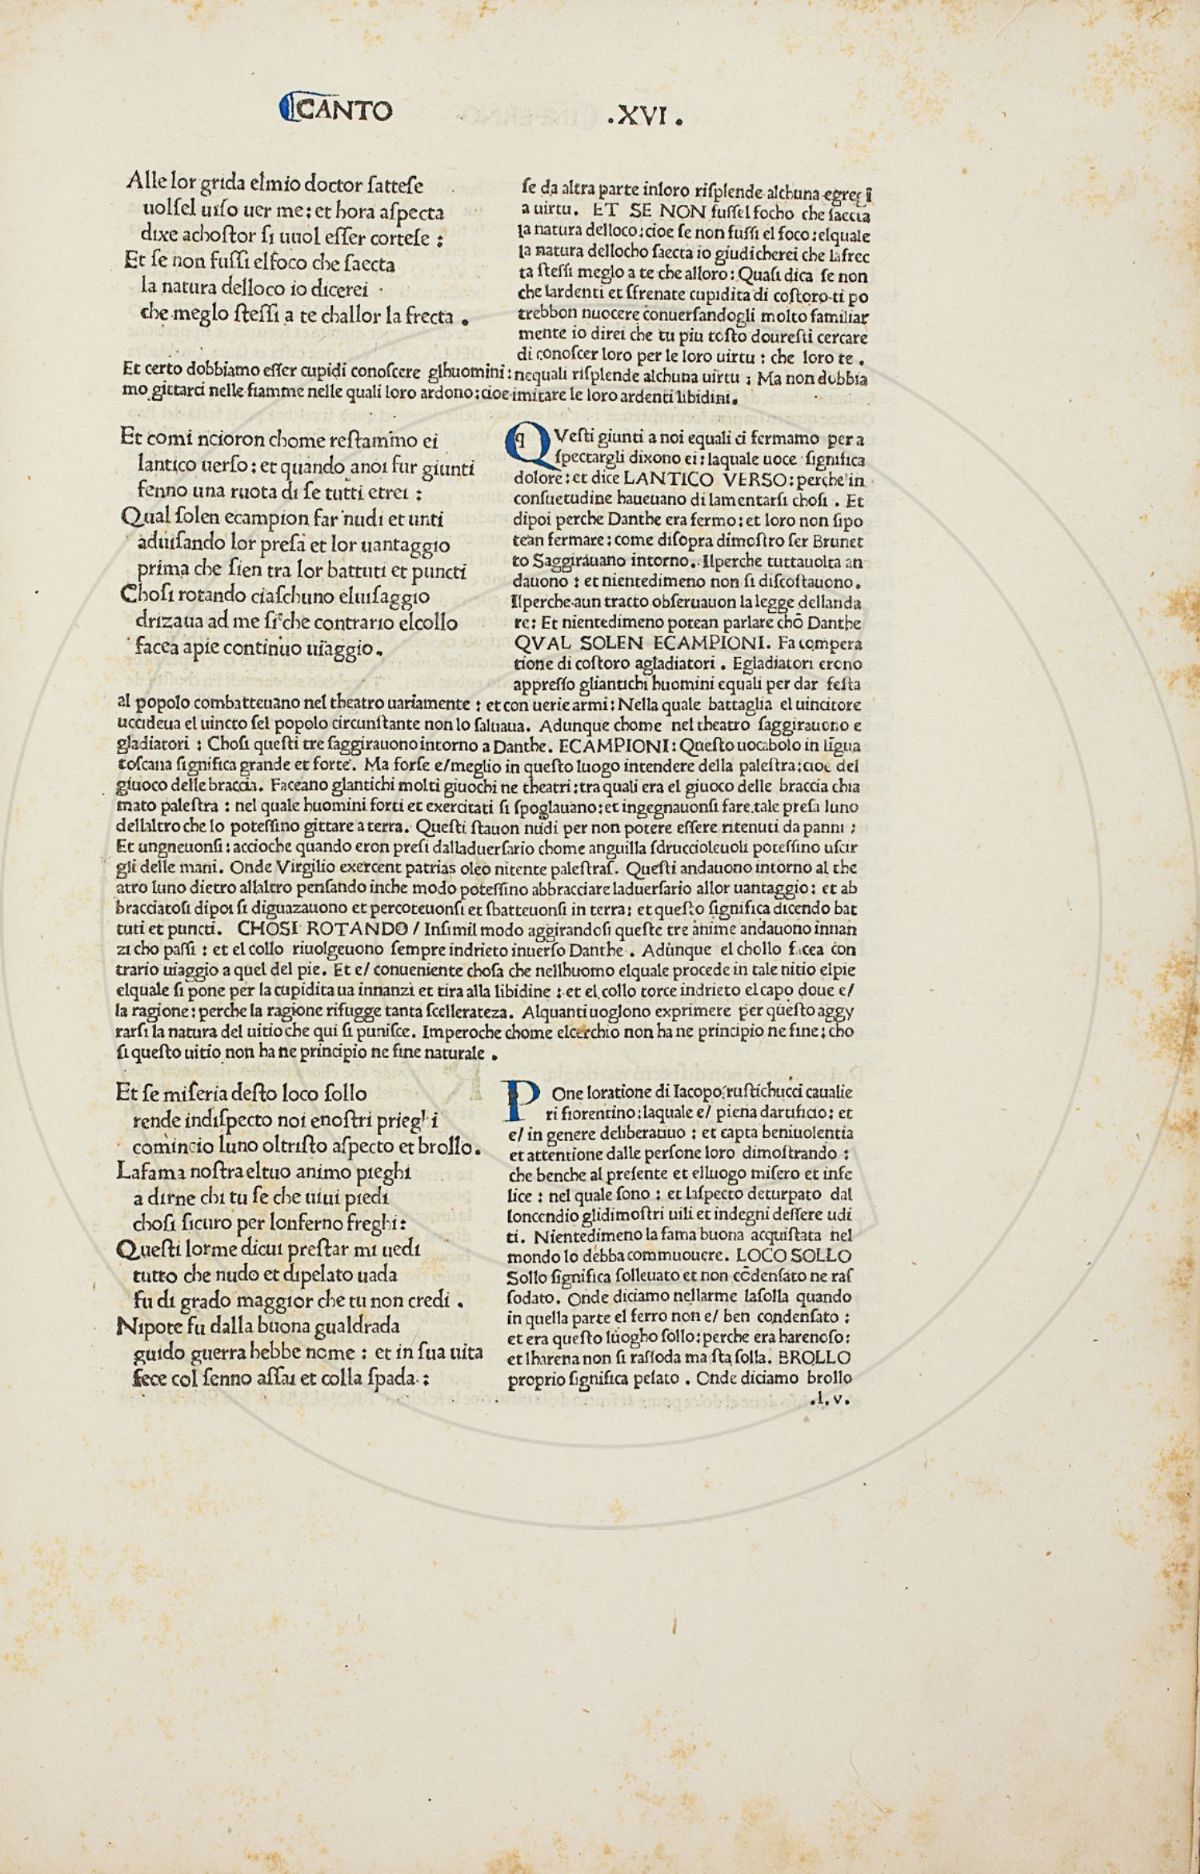 CANTO .XVI.
Alle lor grida elmio doctor ſatteſe
uolſel uiſo uer me: et hora aſpecta
dixe achoſtor ſi uuol eſſer corteſe :
Et ſe non fuſſi elfoco che ſaecta
la natura delloco io dicerei
che meglo ſteſſi a te challor la frecta .
ſe da altra parte inloro riſplende alchuna egregi
a uirtu. ET SE NON fuſſel focho che ſaccia
la natura delloco: cioe ſe non fuſſi el foco: elquale
la natura dellocho ſaecta io giudicherei che lafrec
ta ſteſſi meglo a te che alloro: Quaſi dica ſe non
che lardenti et ſfrenate cupidita di coſtoro ti po
trebbon nuocere conuerſandogli molto familiar
mente io direi che tu piu toſto doureſti cercare
di conoſcer loro per le loro uirtu : che loro te .
Et certo dobbiamo eſſer cupidi conoſcere glhuomini: nequali riſplende alchuna uirtu ; Ma non dobbia
mo gittarci nelle fiamme nelle quali loro ardono; cioe imitare le loro ardenti libidini.
Et comi ncioron chome reſtammo ei
lantico uerſo: et quando anoi fur giunti
fenno una ruota di ſe tutti etrei :
Qual ſolen ecampion far nudi et unti
aduiſando lor preſa et lor uantaggio
prima che ſien tra lor battuti et puncti
Choſi rotando ciaſchuno eluiſaggio
drizaua ad me ſi che contrario elcollo
facea apie continuo uiaggio.
QVeſti giunti a noi equali ci fermamo per a
ſpectargli dixono ei: laquale uoce ſignifica
dolore: et dice LANTICO VERSO: perche in
conſuetudine haueuano di lamentarſi choſi . Et
dipoi perche Danthe era fermo: et loro non ſipo
tean fermare; come diſopra dimoſtro ſer Brunet
to Saggirauano intorno. Ilperche tuttauolta an
dauono : et nientedimeno non ſi diſcoſtauono.
Ilperche aun tracto obſeruauon la legge dellanda
re: Et nientedimeno potean parlare chō Danthe
QVAL SOLEN ECAMPIONI. Fa compera
tione di coſtoro agladiatori . Egladiatori erono
appreſſo gliantichi huomini equali per dar feſta
al popolo combatteuano nel theatro uariamente : et con uerie armi: Nella quale battaglia el uincitore
uccideua el uincto ſel popolo circunſtante non lo ſaluaua. Adunque chome nel theatro ſaggirauono e
gladiatori : Choſi queſti tre ſaggirauono intorno a Danthe. ECAMPIONI: Queſto uocabolo in līgua
toſcana ſignifica grande et forte. Ma forſe e/ meglio in queſto luogo intendere della paleſtra: cioe del
giuoco delle braccia. Faceano glantichi molti giuochi ne theatri: tra quali era el giuoco delle braccia chia
mato paleſtra : nel quale huomini forti et exercitati ſi ſpoglauano: et ingegnauonſi fare tale preſa luno
dellaltro che lo poteſſino gittare a terra. Queſti ſtauon nudi per non potere eſſere ritenuti da panni ;
Et ungneuonſi: accioche quando eron preſi dalladuerſario chome anguilla ſdruccioleuoli poteſſino uſcir
gli delle mani. Onde Virgilio exercent patrias oleo nitente paleſtras. Queſti andauono intorno al the
atro luno dietro allaltro penſando inche modo poteſſino abbracciare laduerſario allor uantaggio: et ab
bracciatoſi dipoi ſi diguazauono et percoteuonſi et ſbatteuonſi in terra; et queſto ſignifica dicendo bat
tuti et puncti. CHOSI ROTANDO / Inſimil modo aggirandoſi queſte tre anime andauono innan
zi cho paſſi : et el collo riuolgeuono ſempre indrieto inuerſo Danthe . Adunque el chollo facea con
trario uiaggio a quel del pie. Et e/ conueniente choſa che nellhuomo elquale procede in tale uitio elpie
elquale ſi pone per la cupidita ua innanzi et tira alla libidine : et el collo torce indrieto el capo doue e/
la ragione: perche la ragione rifugge tanta ſcellerateza. Alquanti uoglono exprimere per queſto aggy
rarſi la natura del uitio che qui ſi puniſce. Imperoche chome elcerchio non ha ne principio ne fine; cho
ſi queſto uitio non ha ne principio ne fine naturale .
Et ſe miſeria deſto loco ſollo
rende indiſpecto noi enoſtri prieghi
comincio luno oltriſto aſpecto et brollo.
Lafama noſtra eltuo animo pieghi
a dirne chi tu ſe che uiui piedi
choſi ſicuro per lonferno freghi:
Queſti lorme dicui preſtar mi uedi
tutto che nudo et dipelato uada
fu di grado maggior che tu non credi .
Nipote fu dalla buona gualdrada
guido guerra hebbe nome : et in ſua uita
fece col ſenno aſſai et colla ſpada :
POne loratione di Iacopo ruſtichucci caualie
ri fiorentino: laquale e/ piena dartificio: et
e/ in genere deliberatiuo : et capta beniuolentia
et attentione dalle perſone loro dimoſtrando :
che benche al preſente et elluogo miſero et infe
lice : nel quale ſono : et laſpecto deturpato dal
loncendio glidimoſtri uili et indegni deſſere udi
ti. Nientedimeno la fama buona acquiſtata nel
mondo lo debba commuouere. LOCO SOLLO
Sollo ſignifica ſolleuato et non cōdenſato ne raſ
ſodato. Onde diciamo nellarme laſolla quando
in quella parte el ferro non e/ ben condenſato :
et era queſto luogho ſollo: perche era harenoſo:
et lharena non ſi raſſoda ma ſta ſolla. BROLLO
proprio ſignifica pelato . Onde diciamo brollo
.l. v.